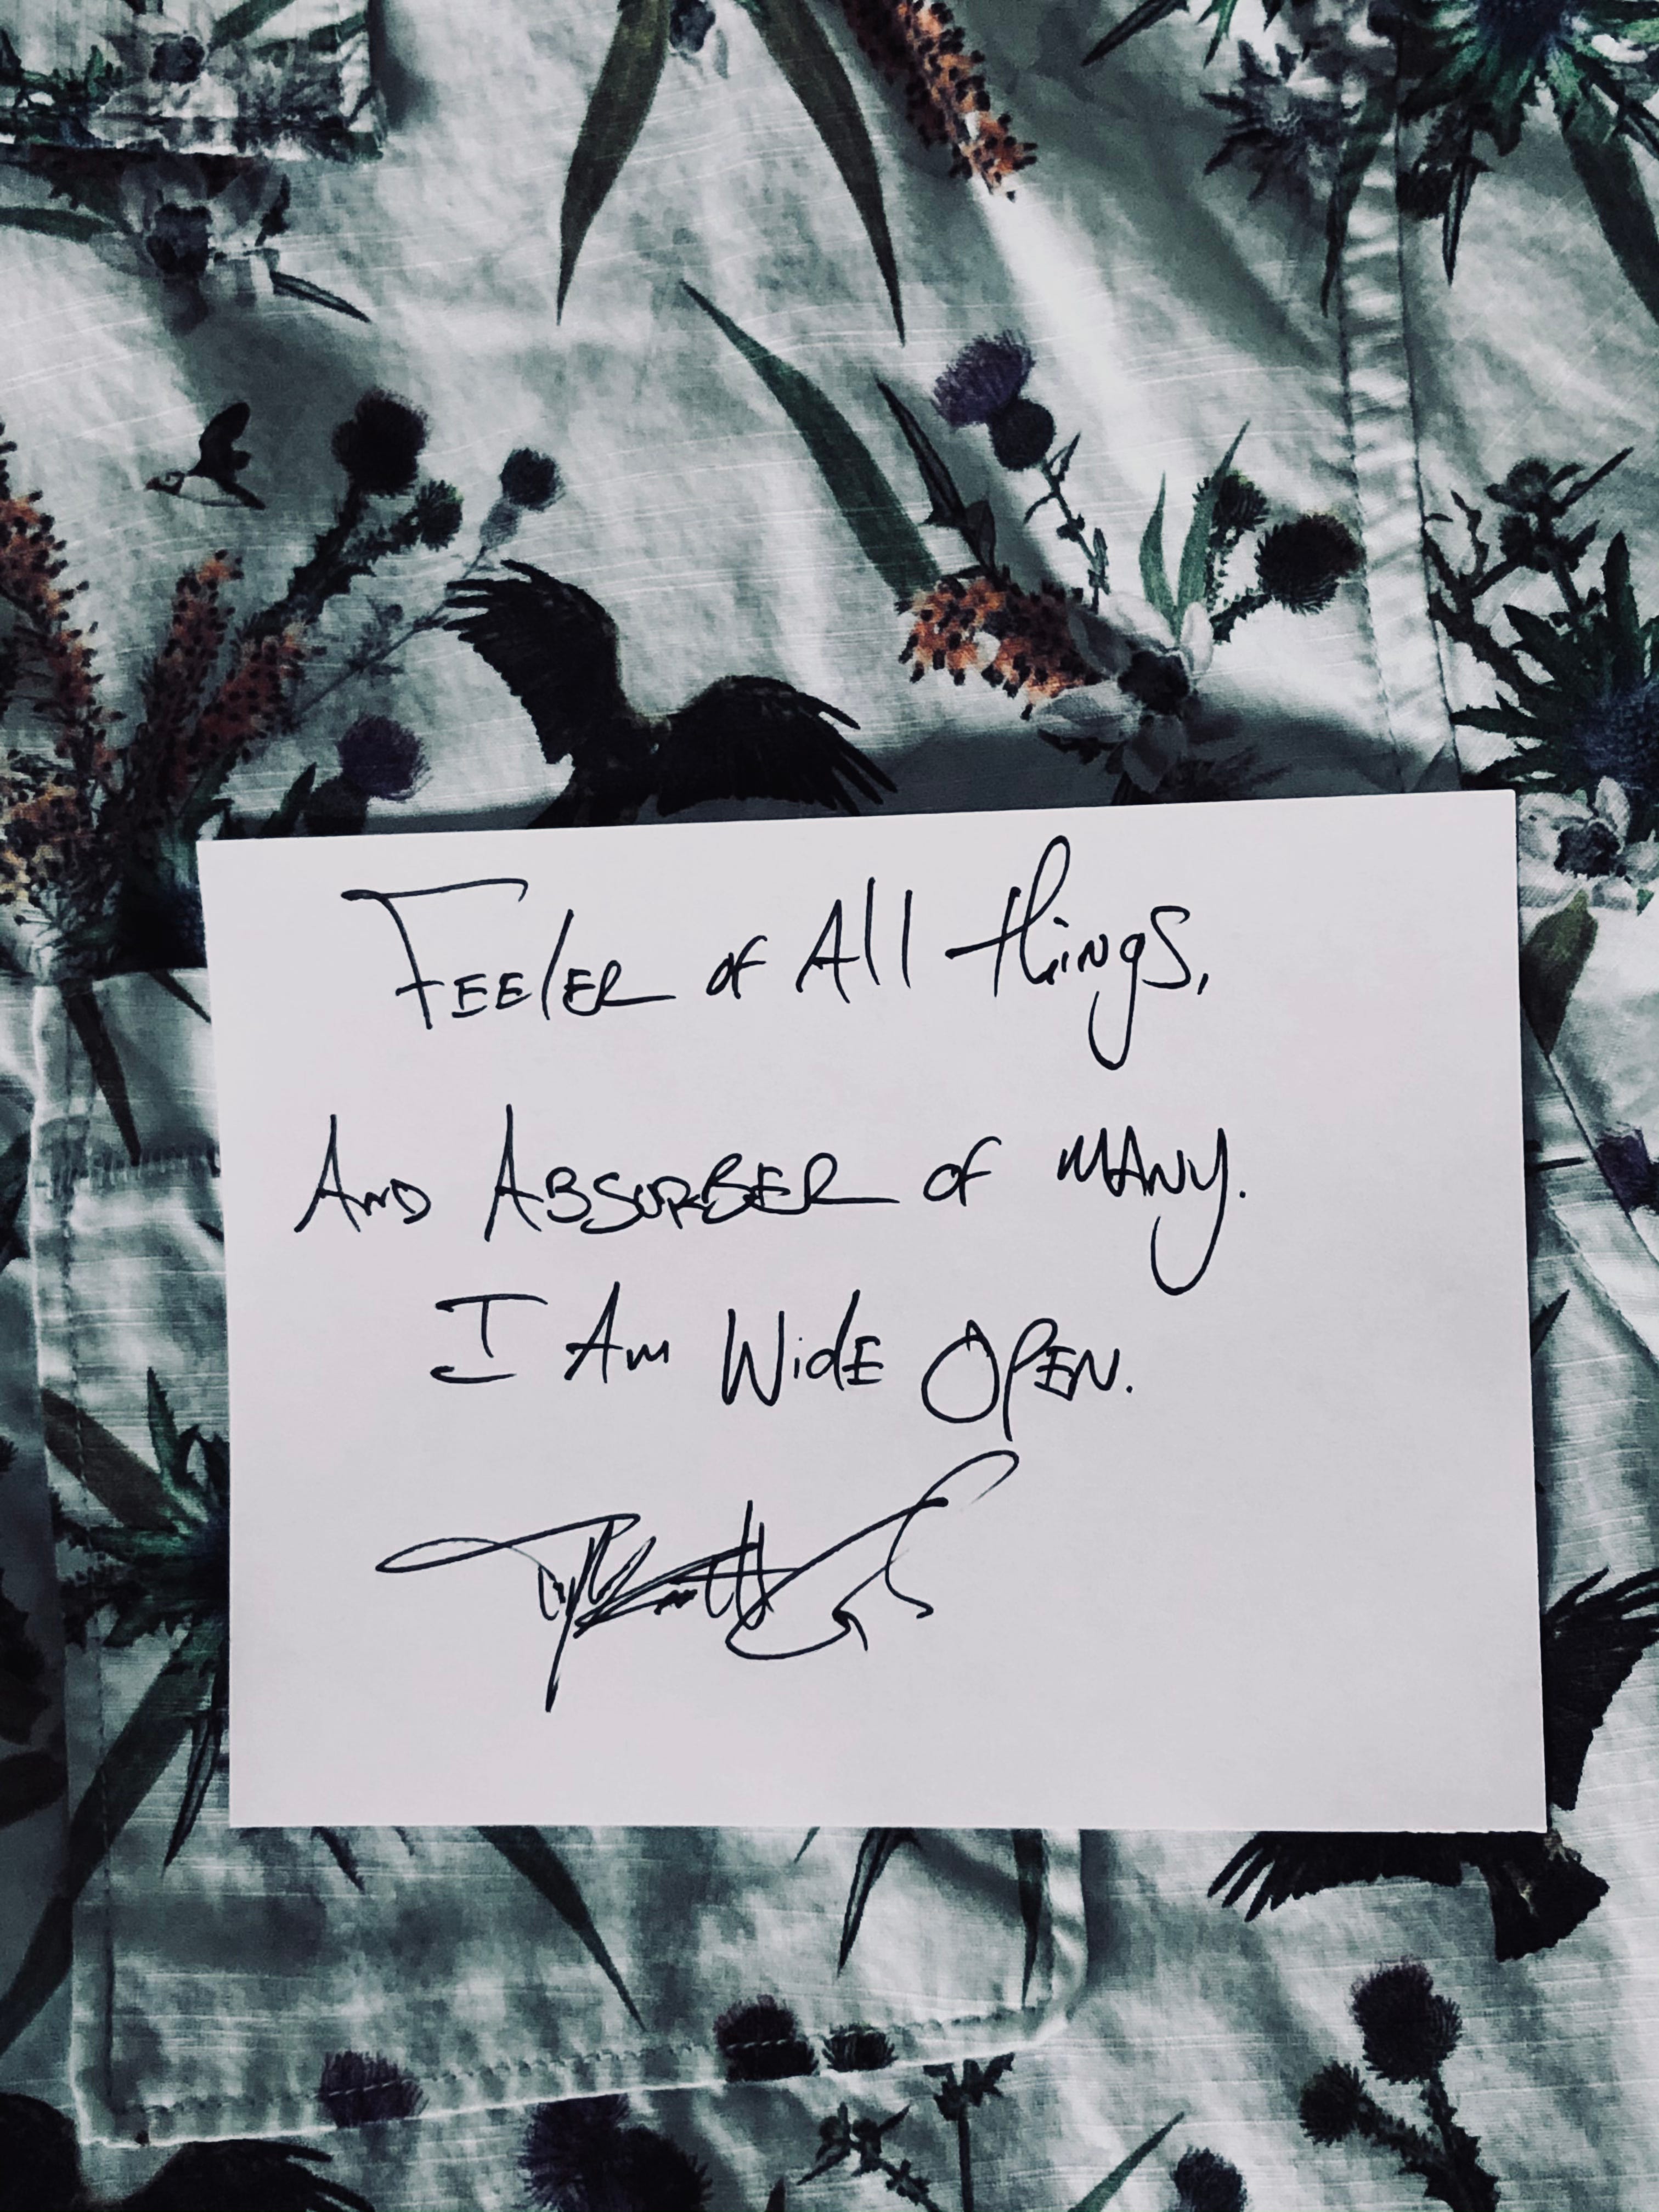 Feeler of All things,
And Absorber of many.
I Am Wide Open.